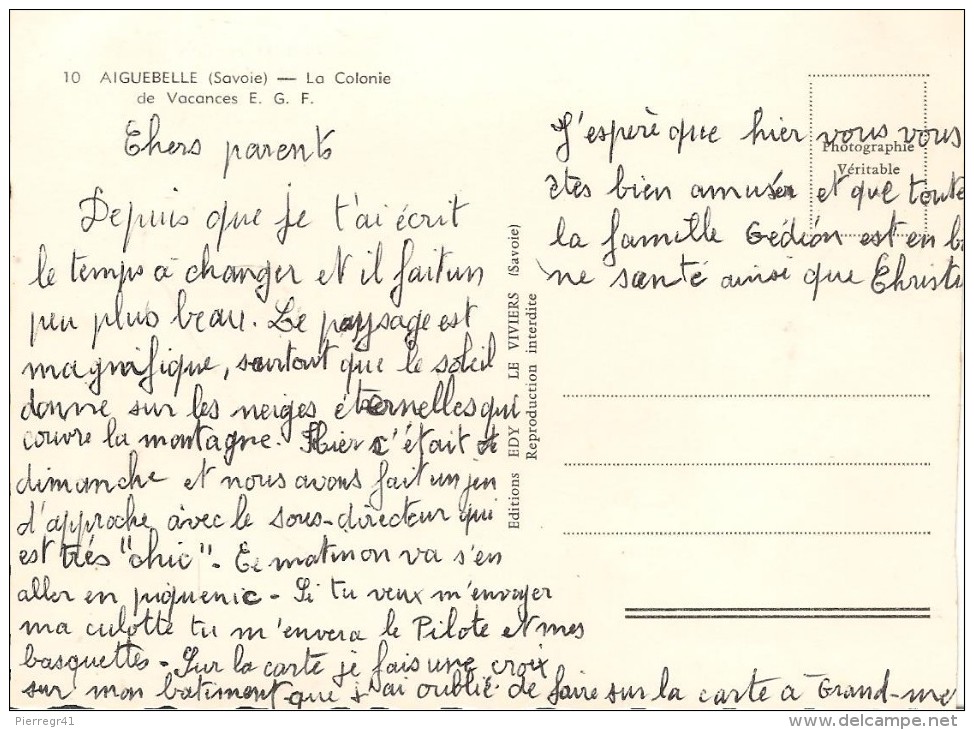 10 AIGUEBELLE (Savoie) — La Colonie
de Vacances E. G. F.
Chers parents
Depuis que je t'ai écrit
le temps à changer et il fait un
peu plus beau. Le paysage est
magnifique, surtout que le soleil
donne sur les neiges éternelles qui
couvre la montagne. Hier c'était
dimanche et nous avons fait un jeu
d'approche avec le sous-directeur qui
est très "chic". Ce matin on va s'en
aller en piquenic - Si tu veux m'envoyer
ma culotte tu m'envera le Pilote et mes
basquettes - Sur la carte je fais une croix
sur mon batiment que j'ai oublié de faire sur la carte à Grand-me
Editions EDY LE VIVIERS (Savoie)
Reproduction interdite
Photographie
Véritable
J'espère que hier vous vous
êtes bien amuser et que toute
la famille Gédéon est en b
ne santé ainsi que Christi
Pierregr41
delcampe.net